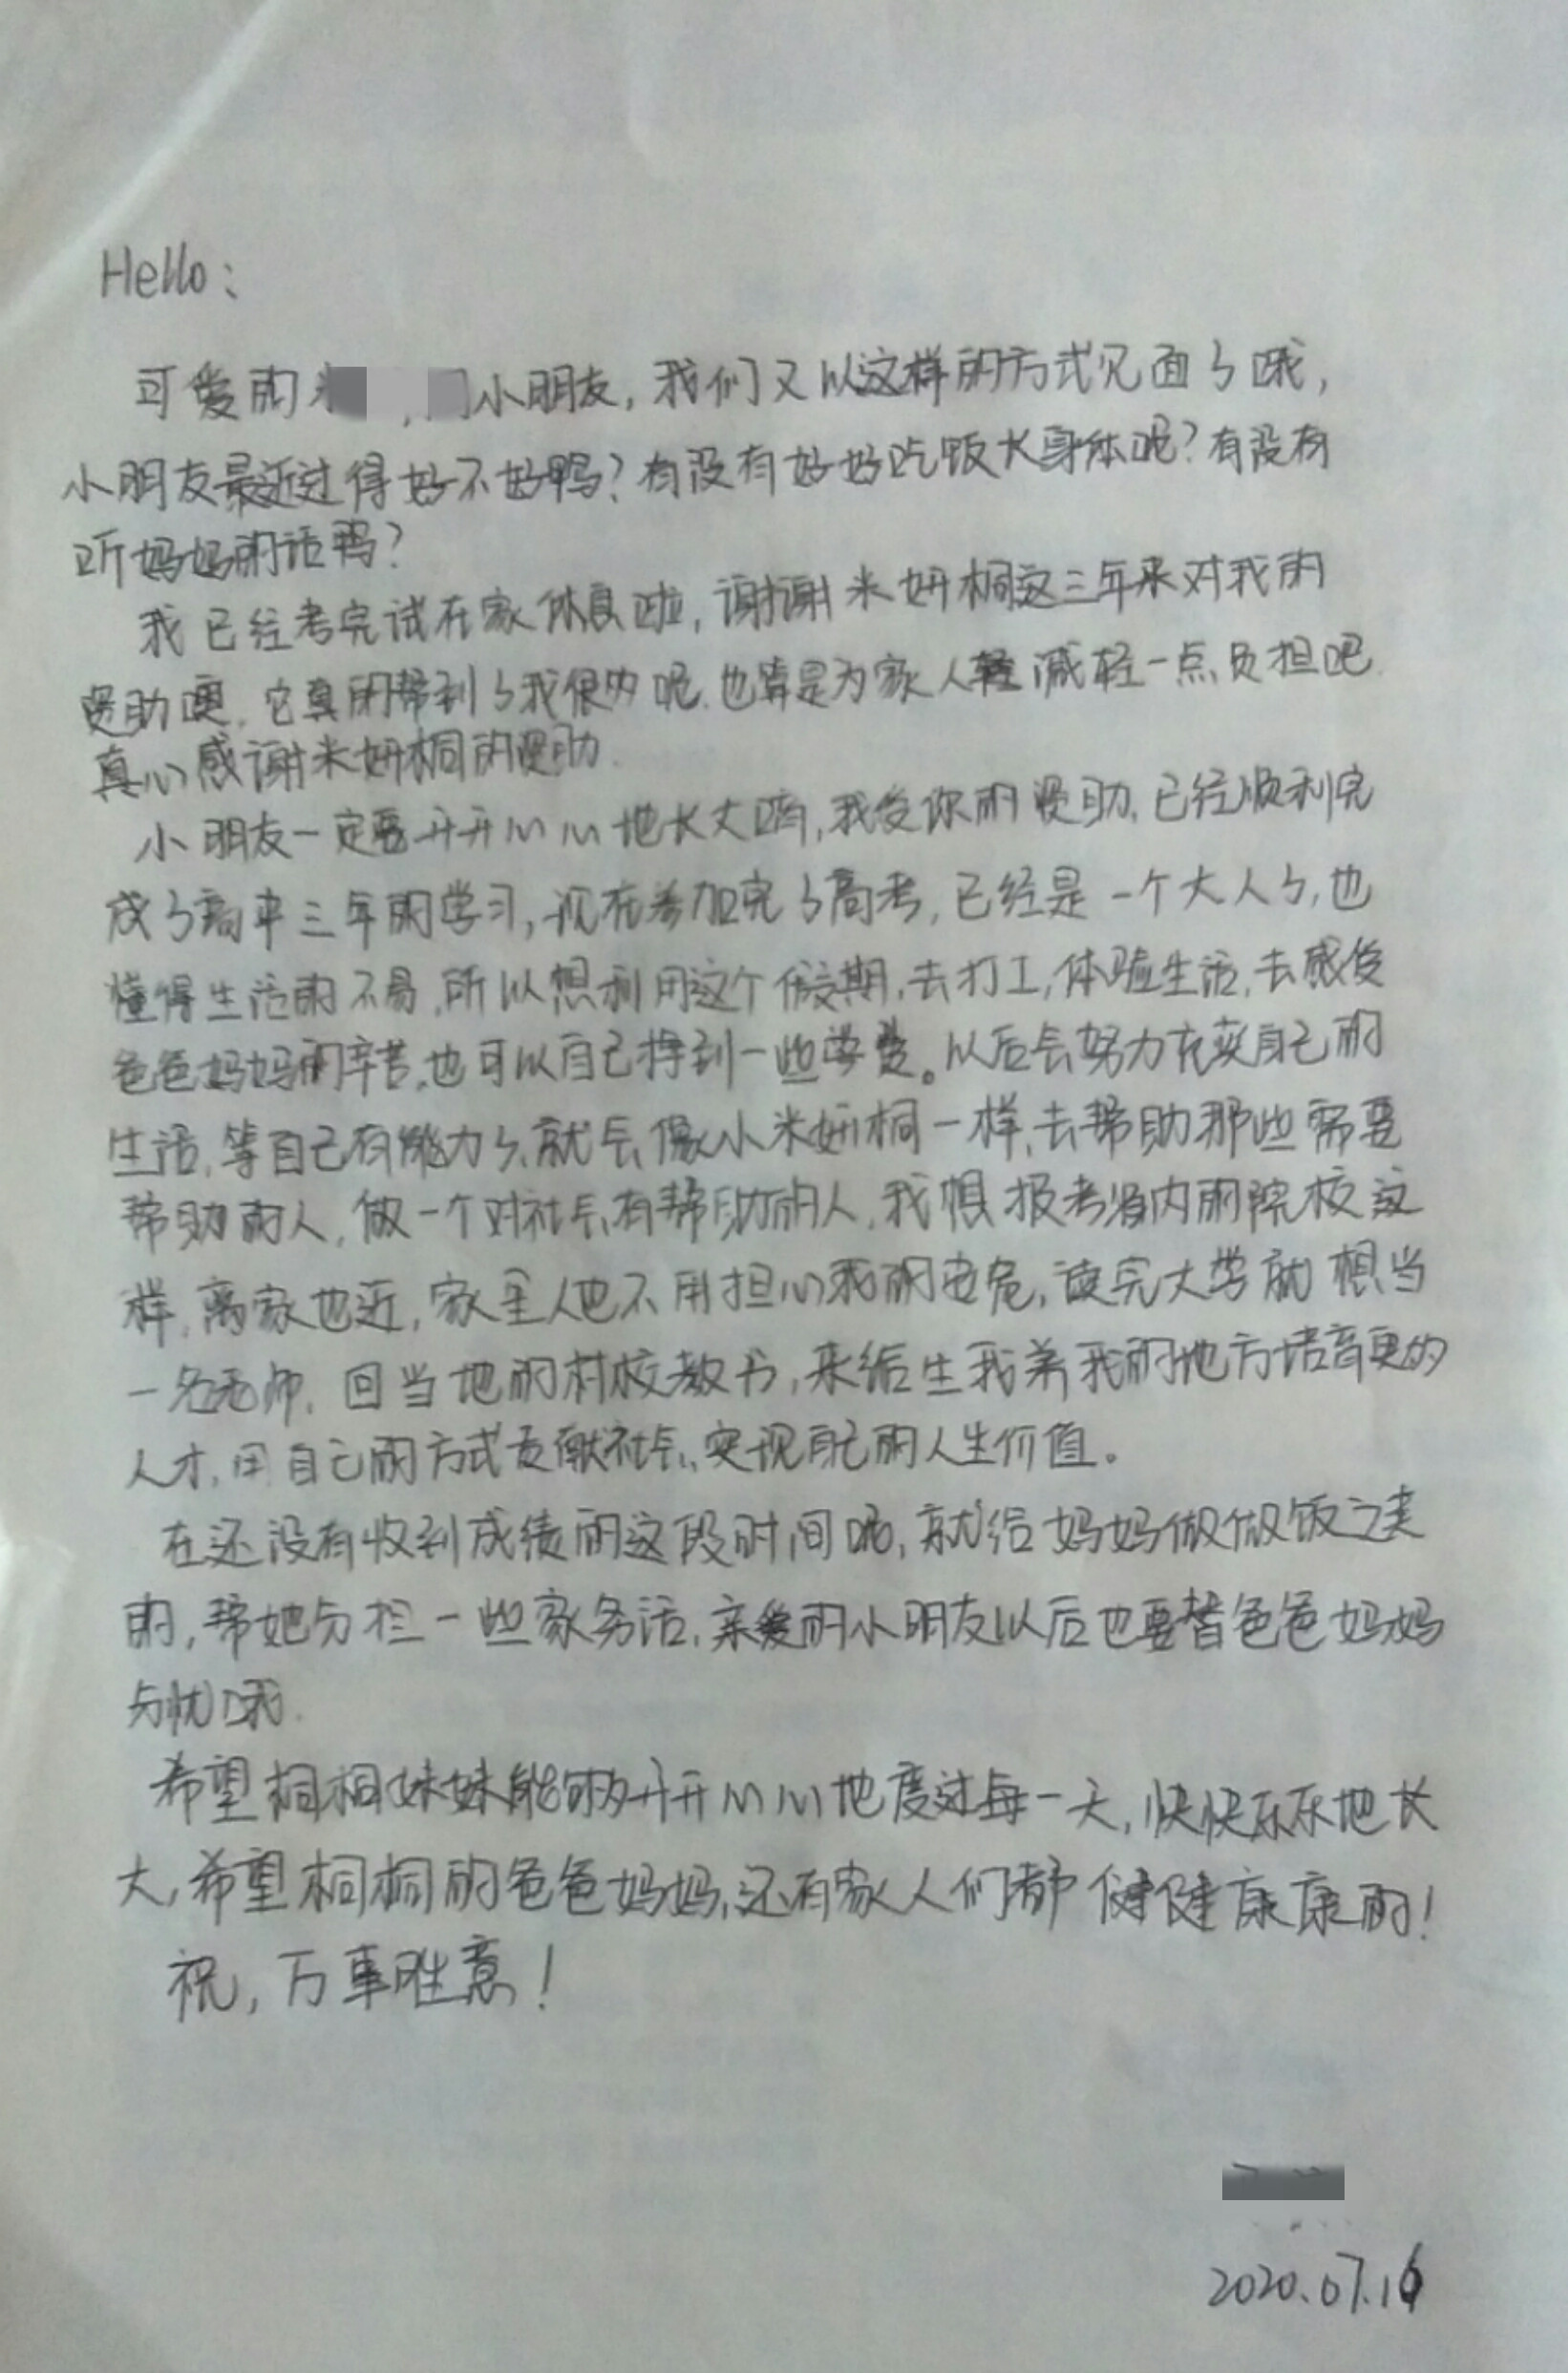 Hello：
可爱的 小朋友，我们又以这样的方式见面了哦，
小朋友最近过得好不好鸭？有没有好好吃饭长身体呢？有没有
听妈妈的话鸭？
我已经考完试在家休息啦，谢谢米妍桐这三年来对我的
资助噢，它真的帮到了我很多呢，也算是为家人减轻一点负担吧.
真心感谢米妍桐的资助.
小朋友一定要开开心心地长大哦，我受你的资助，已经顺利完
成了高中三年的学习，现在参加完了高考，已经是一个大人了，也
懂得生活的不易，所以想利用这个假期，去打工，体验生活，去感受
爸爸妈妈的辛苦，也可以自己挣到一些学费。以后会努力充实自己的
生活，等自己有能力了，就会像小米妍桐一样，去帮助那些需要
帮助的人，做一个对社会有帮助的人，我想报考省内的院校这
样，离家也近，家里人也不用担心我的安危，读完大学就想当
一名老师，回当地的村校教书，来给生我养我的地方培育更的
人才，用自己的方式贡献社会，实现自己的人生价值。
在还没有收到成绩的这段时间呢，就给妈妈做做饭之类
的，帮她分担一些家务活，亲爱的小朋友以后也要替爸爸妈妈
分忧哦.
希望桐桐妹妹能够开开心心地度过每一天，快快乐乐地长
大，希望桐桐的爸爸妈妈，还有家人们都健健康康的！
祝，万事胜意！
2020.07.16